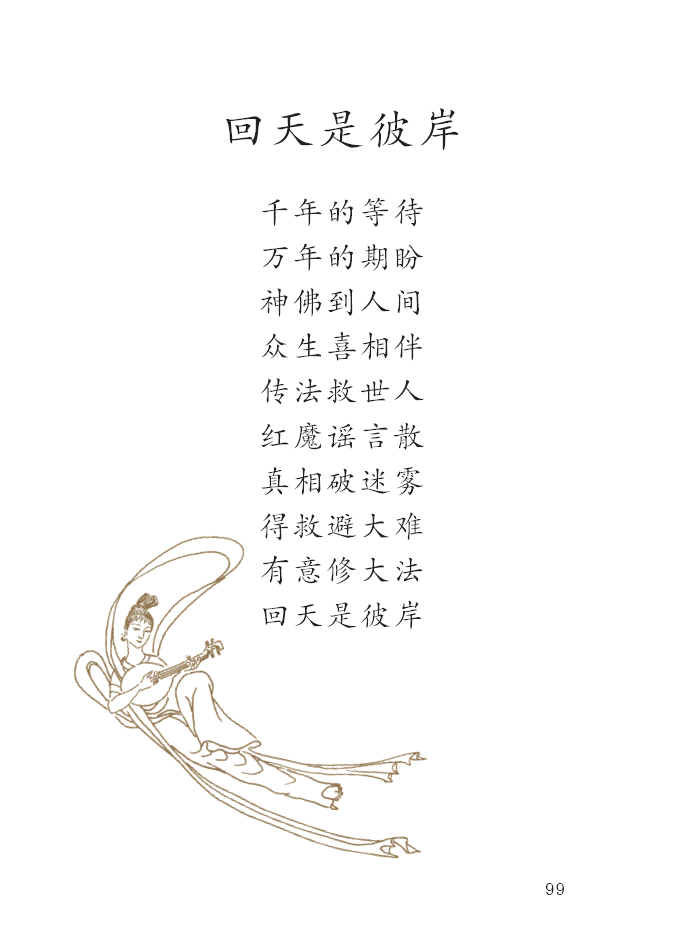 回天是彼岸
千年的等待
万年的期盼
神佛到人间
众生喜相伴
传法救世人
红魔谣言散
真相破迷雾
得救避大难
有意修大法
回天是彼岸
99